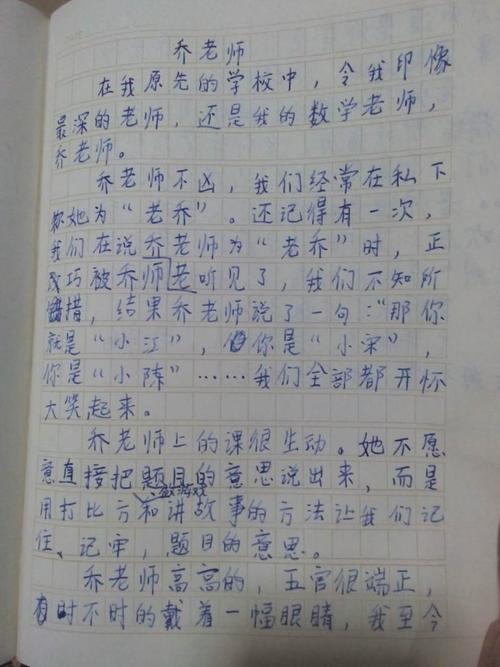 乔老师
在我原先的学校中，令我印像
最深的老师，还是我的数学老师，
乔老师。
乔老师不凶，我们经常在私下
称她为“老乔”。还记得有一次，
我们在说乔老师为“老乔”时，正
巧被乔师老听见了，我们不知所
措，结果乔老师说了一句：“那你
就是“小江”，你是“小宋”，
你是“小陈”……我们全部都开怀
大笑起来。
乔老师上的课很生动。她不愿
意直接把题目的意思说出来，而是
用打比方、做游戏和讲故事的方法让我们记
住、记牢，题目的意思。
乔老师高高的，五官很端正，
时不时的戴着一幅眼睛，我至今